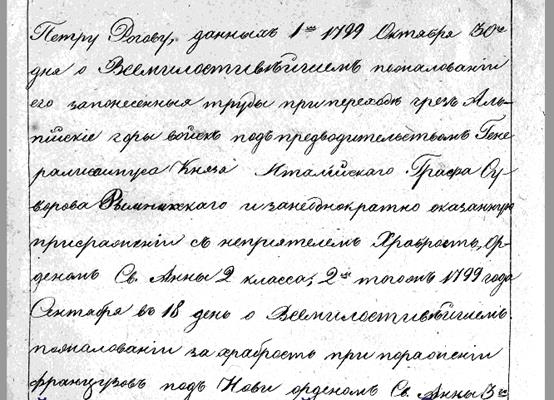 Петру Рогову, данныхъ 1ᵐъ 1799 Октября 30ᵍᵒ
дня о Всемилостивѣйшемъ пожалованіи
его запонесенныя труды припереходѣ чрезъ Аль-
пійскіе горы войскъ подъ предводительствомъ Гене
ралисимуса Князя Италійскаго Графа Су-
ворова Рымникскаго и занеоднократно оказанную
присраженіи съ непріятелемъ храбрость, ор-
деномъ Св. Анны 2 класса; 2ᵐъ тогожъ 1799 года
Сентября въ 18 день о Всемилостивѣйшемъ
пожалованіи за храбрость при пораженіи
французовъ подъ Нови орденомъ Св. Анны 3ᵍᵒ